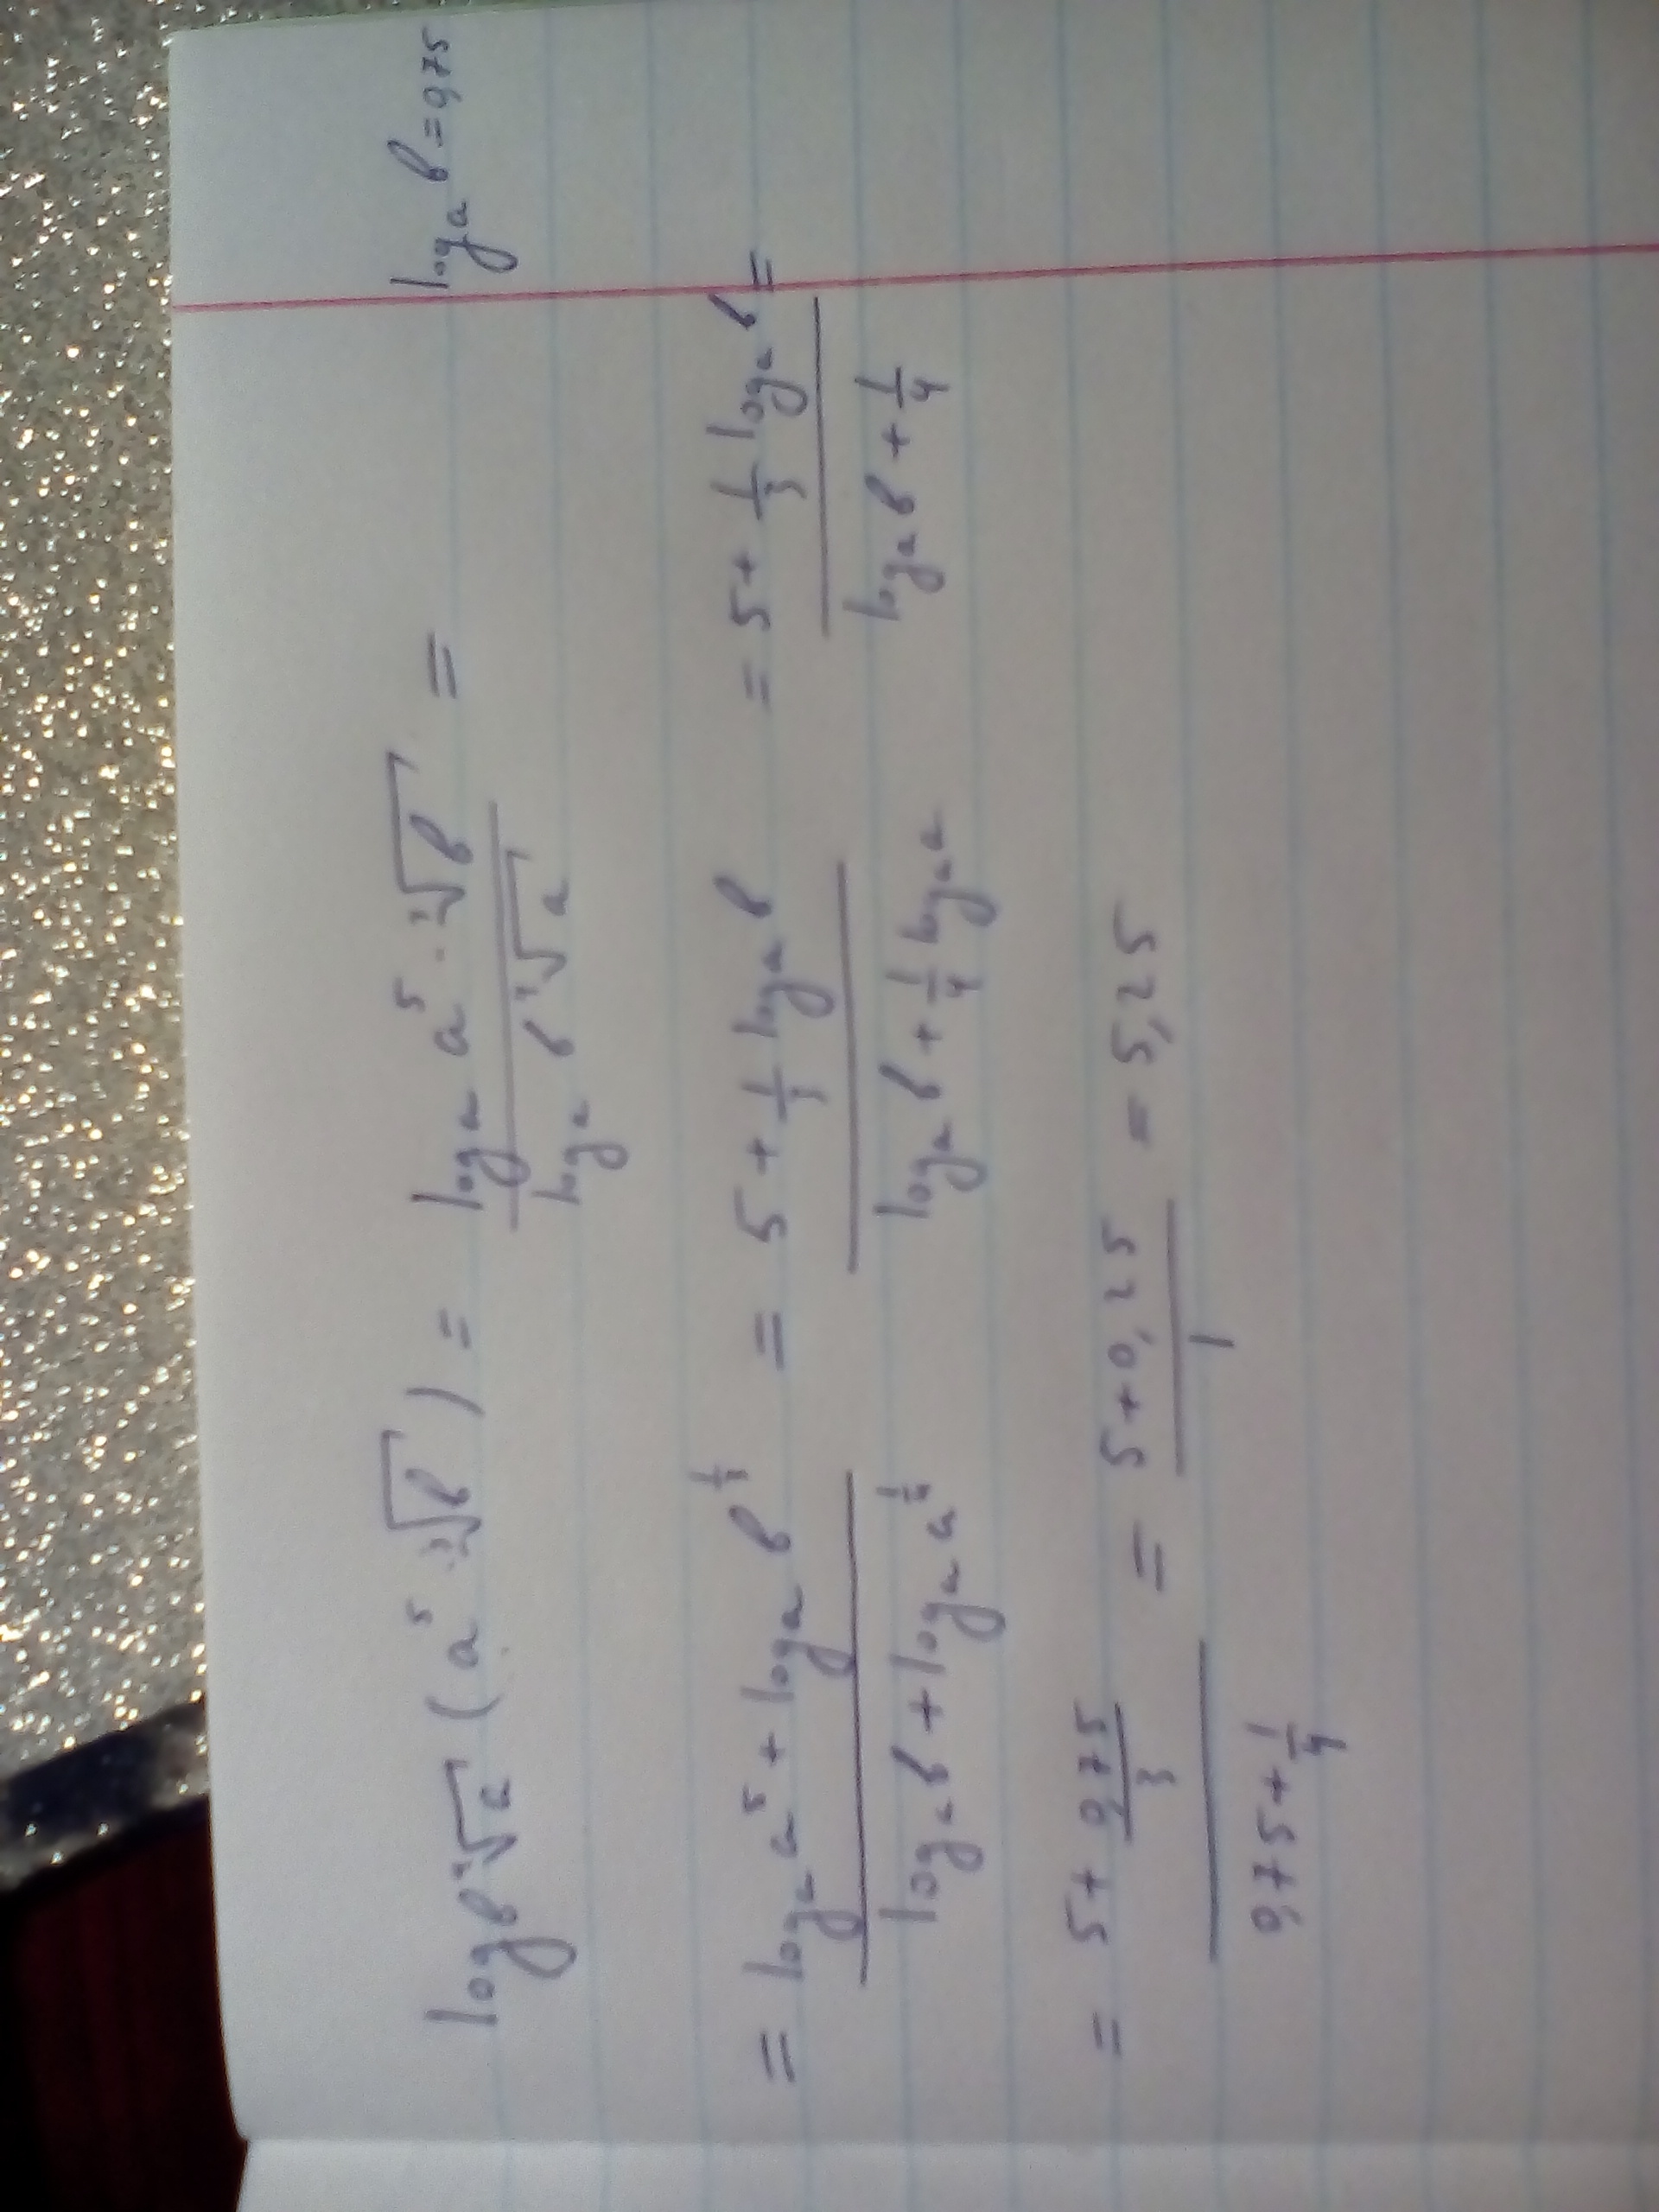 log_{b⁴√a} (a⁵ · ³√b) = \frac{log_a a⁵ · ³√b}{log_a b ⁴√a} = log_a b = 0,75
= \frac{log_a a⁵ + log_a b^{\frac{1}{3}}}{log_a b + log_a a^{\frac{1}{4}}} = \frac{5 + \frac{1}{3} log_a b}{log_a b + \frac{1}{4} log_a a} = \frac{5 + \frac{1}{3} log_a b}{log_a b + \frac{1}{4}} =
= \frac{5 + \frac{0,75}{3}}{0,75 + \frac{1}{4}} = \frac{5 + 0,25}{1} = 5,25